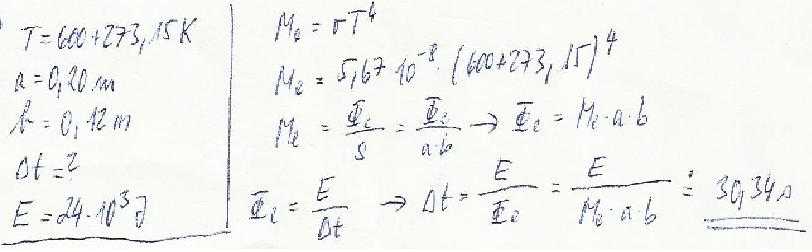 T = 600+273,15 K
a = 0,20 m
b = 0,12 m
Δt = ?
E = 24·10³ J
Mₑ = σT⁴
Mₑ = 5,67·10⁻⁸·(600+273,15)⁴
Mₑ = Φₑ/S = Φₑ/a·b → Φₑ = Mₑ·a·b
Φₑ = E/Δt → Δt = E/Φₑ = E/Mₑ·a·b ≐ 30,34 s